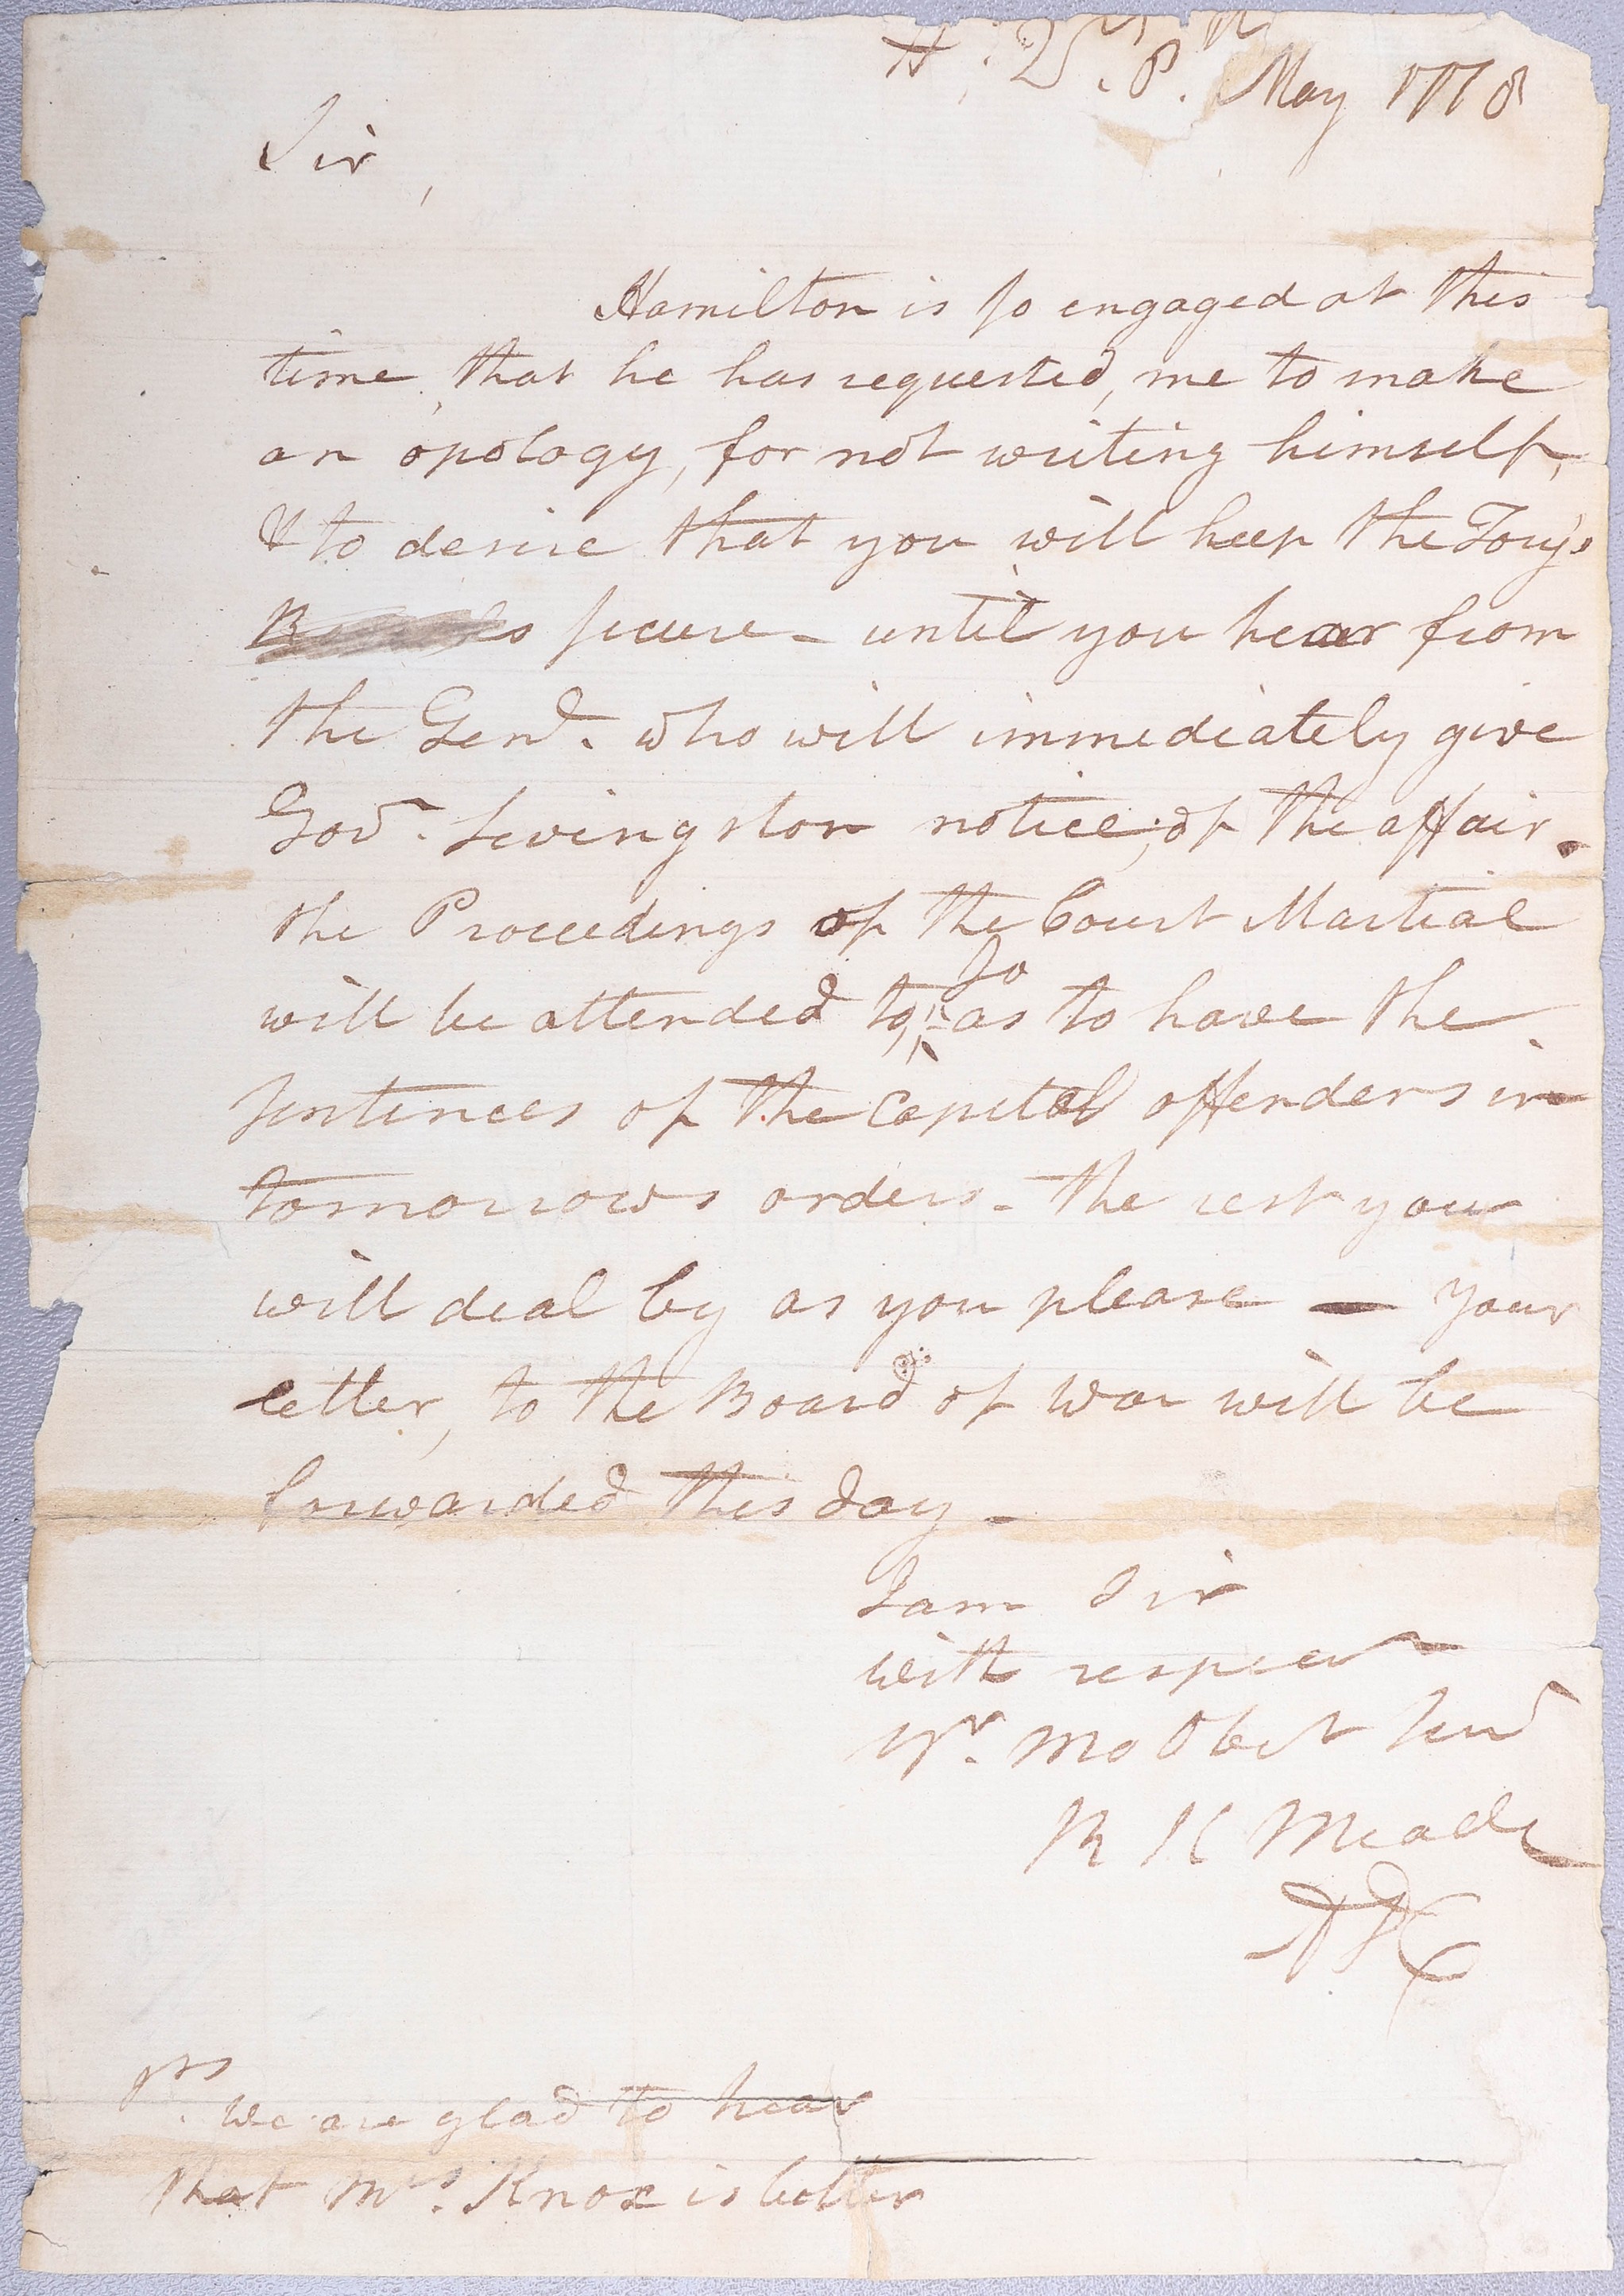 H. Qrs. May 1778
Sir,
Hamilton is so engaged at this
time, that he has requested, me to make
an apology, for not writing himself,
& to desire that you will keep the Tory's
secure - until you hear from
the Genl. who will immediately give
Govr. Livingston notice, of the affair.
the Proceedings of the Court Martial
will be attended to, so as to have the
sentences of the Capital offenders in
tomorrows orders - The rest you
will deal by as you please — Your
letter, to the Board of War will be
forwarded this day -
I am Sir
with respect
Yr. Mo Obet Serv
R K Meade
ADC
Ps. We are glad to hear
that Mrs. Knox is better